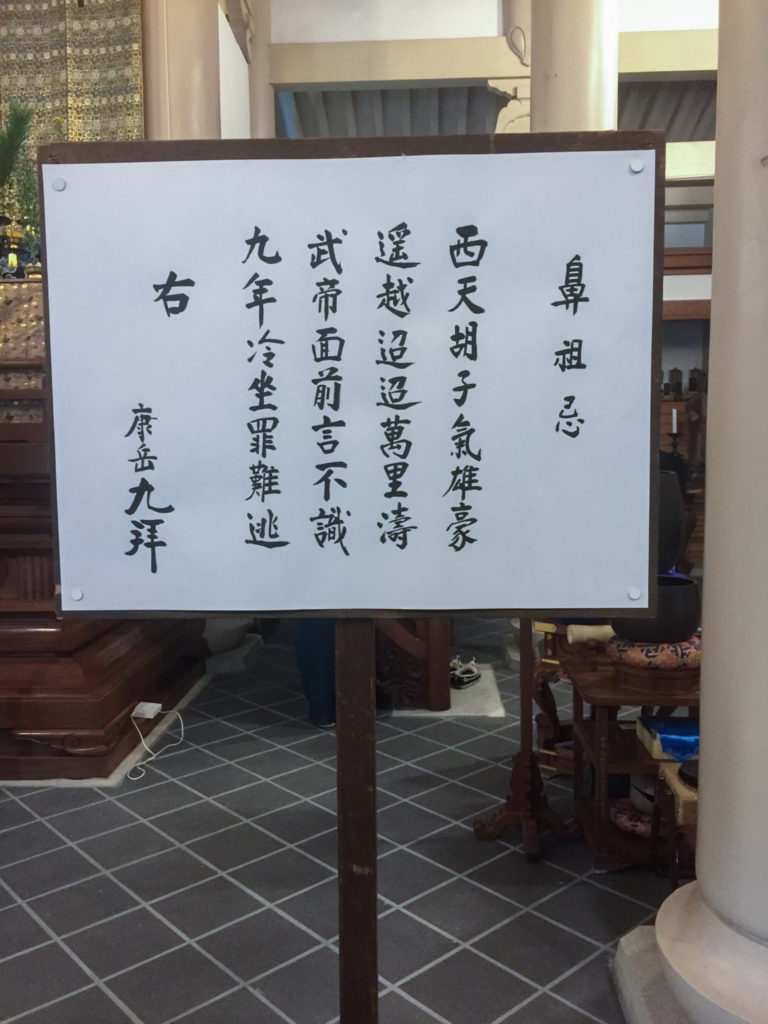 鼻祖忌
西天胡子氣雄豪
遥越迢迢萬里濤
武帝面前言不識
九年冷坐罪難逃
右
康岳九拜